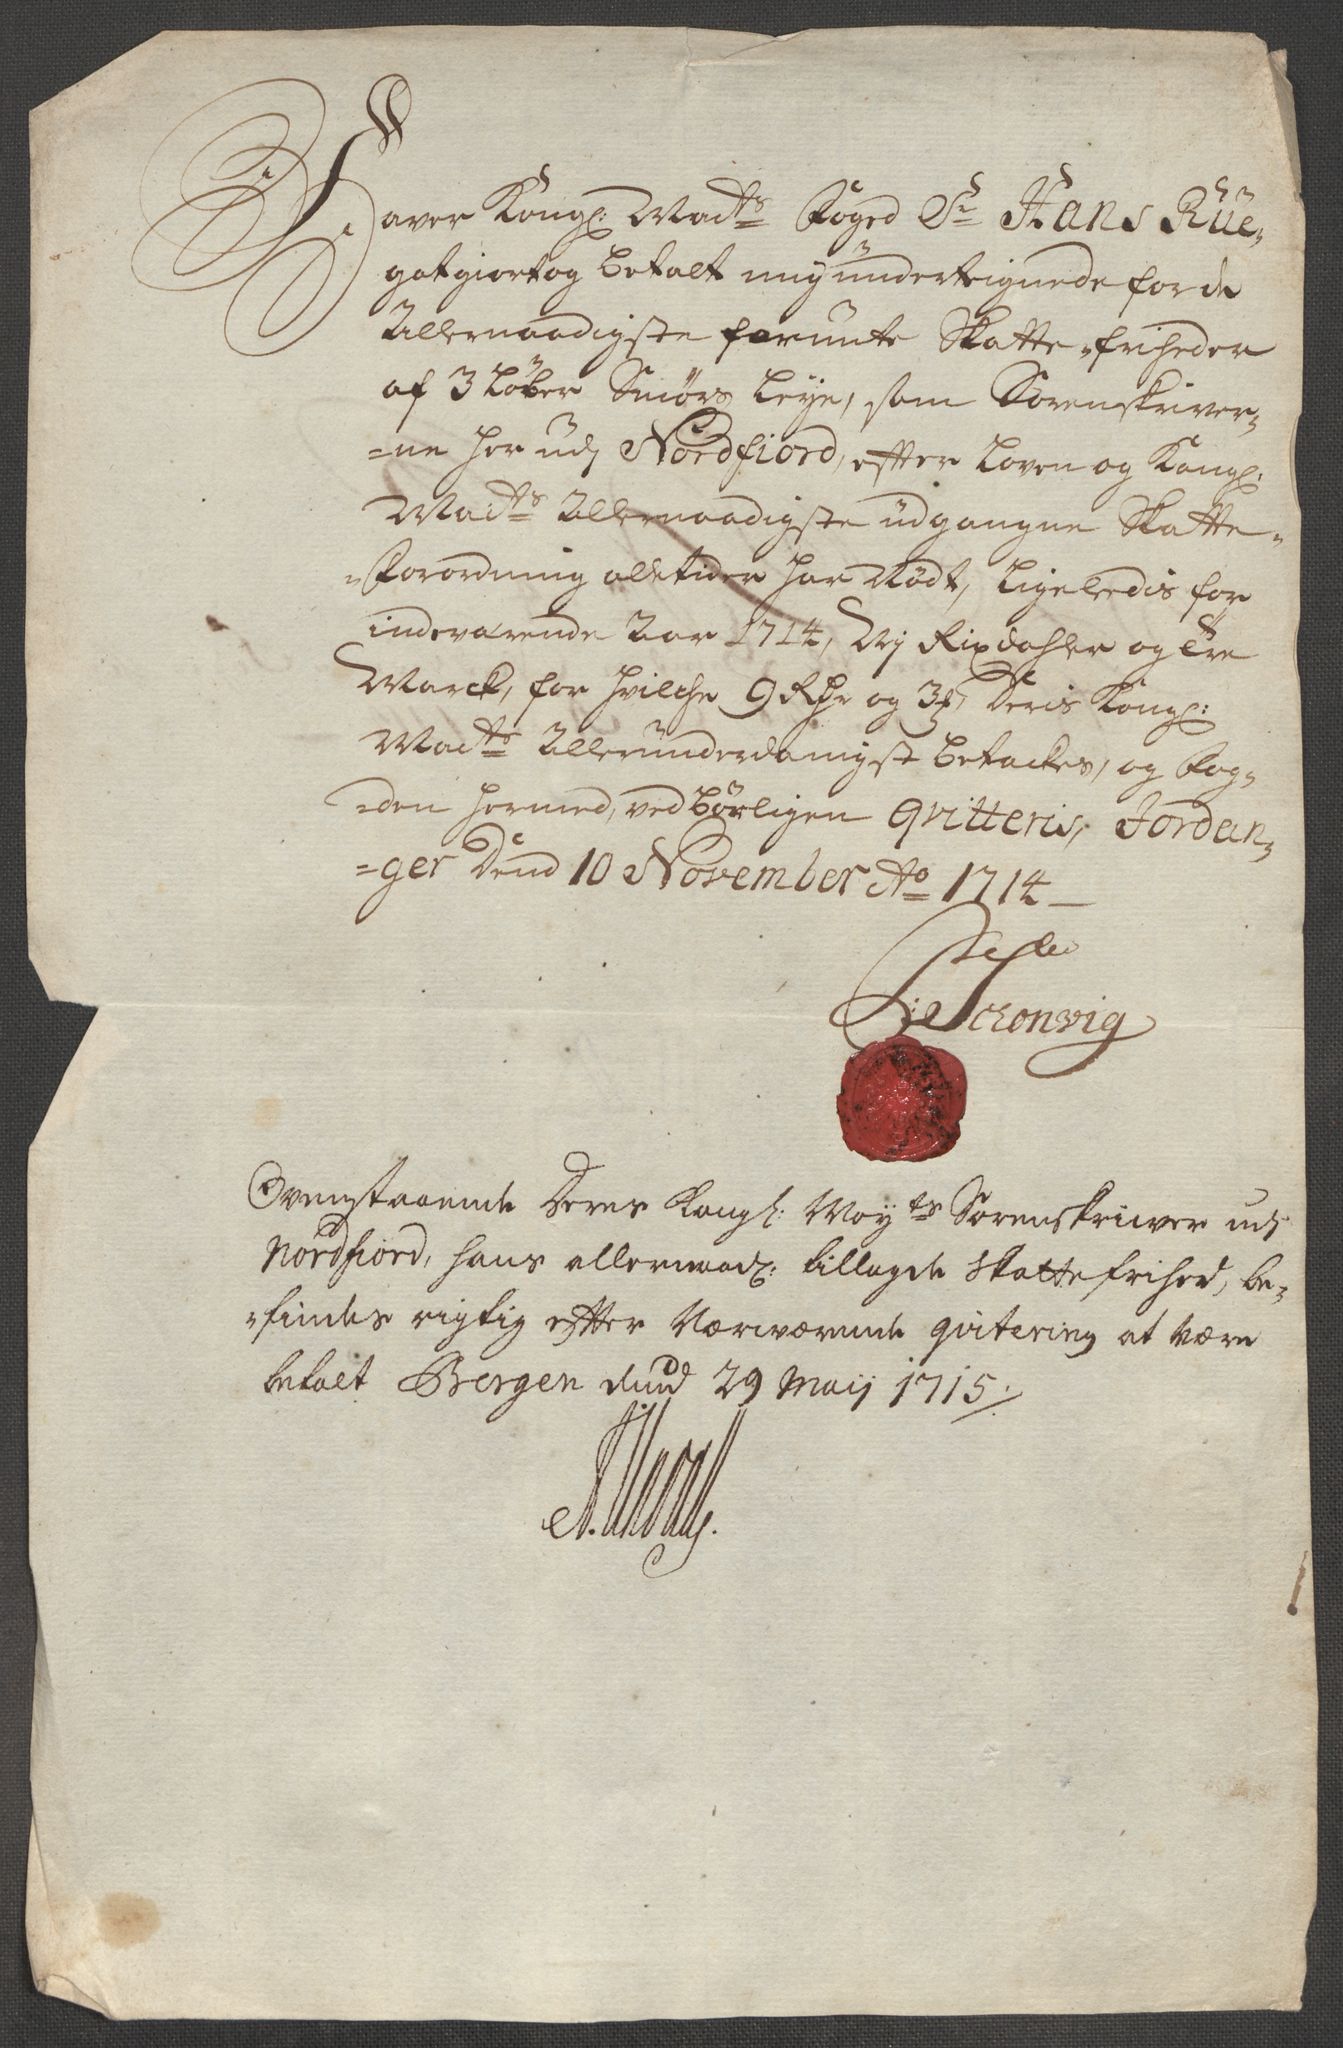 Haver Kongl: Maÿts Foged Sr Hans Rüe-
gotgiort og betalt mig underteignede for de
Allernaadigste forunte Skatte-friheder
af 3 Løber Smørs Leye, som Sorenskriver-
=ne her udj Nordfiord, efter Loven og Kongl:
Mayts Allernaadigste udgangne Skatte-
-Forordning alletider har Nødt, Ligeledis for
indeværende Aar 1714, Nj Rixdahler og tre
Marck, for hvilche 9 Rdr og 3 Deris Kongl:
Mayts Allerunderdanigst betackes, og Fog-
=den hermed, vedbørligen qvitteris, Jordan-
=ger Dend 10 November Ao 1714
Schonvig
Ovenstaaende Deres Kongl: May:ts Sorenskriwer udj
Nordfiord, hans allernaad: tillagde skattefrihed, be-
-findes rigtig efter Nærwærende qvitering at være
betalt Bergen dend 29 Maij 1715.